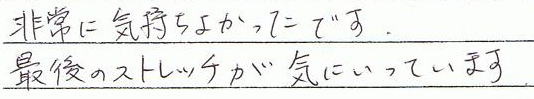 非常に気持ちよかったです.
最後のストレッチが気にいっています